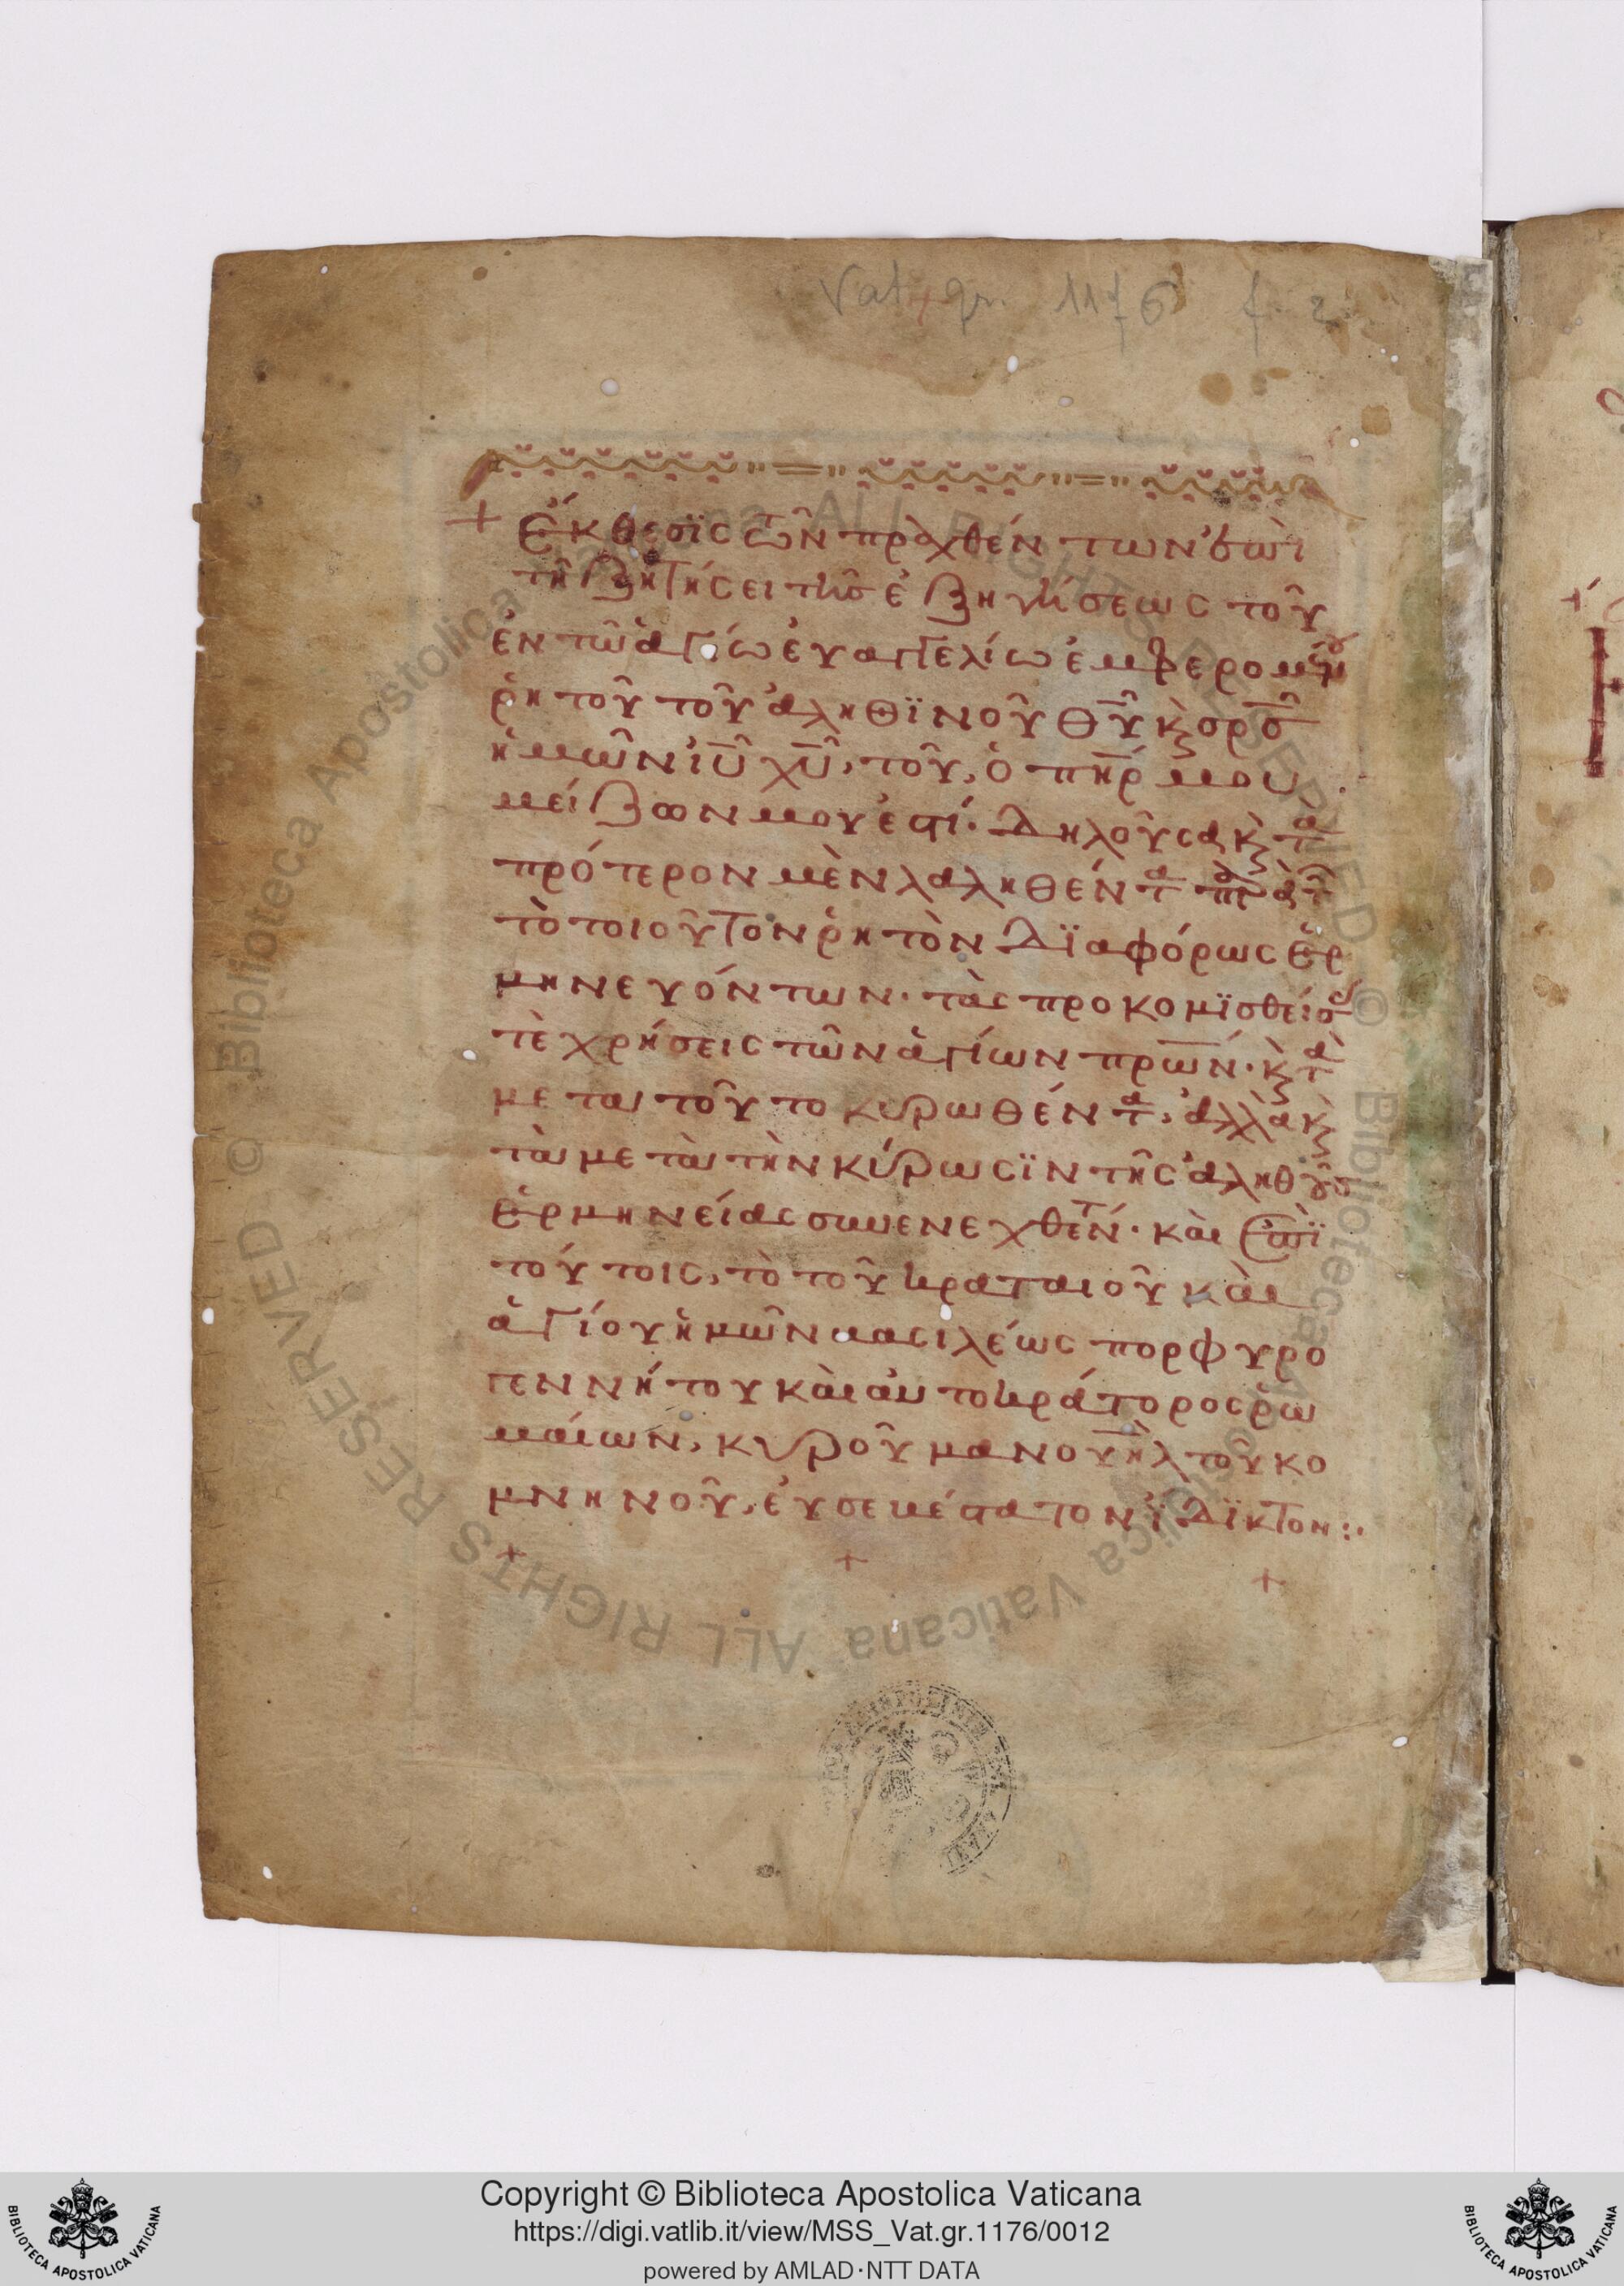 Vat. gr. 1176 f. 2
+ Ἔκθεσϊς τῶν πραχθέντων ἐπὶ
τῆ ζητήσει τῆς ἐξηγήσεως τοῦ
ἐν τῶ ἁγίω ἐυαγγελίω ἐμφερομένου
ῥητοῦ τοῦ ἀληθϊνοῦ θῡ κ̀ σρ̄ς
ἡμῶν ῑῡ χ̄ῡ, τοῦ, ὁ πη̄ρ μου
μείζων μου ἐστί· δηλοῦσα κ̀ τὰ
πρότερον μὲν λαληθέντα
τὸ τοιοῦτον ῥητὸν δϊαφόρως ἑρ
μηνευόντων· τὰς προκομϊσθείσας
τὲ χρήσεις τῶν ἁγίων πρ̄ων· κ̀ τὰ
μετα τοῦτο κυρωθέντα, ἀλλὰ κ̀
τὰ μετὰ τὴν κύρωσϊν τῆς ἀληθοῦς
ἑρμηνείας συνενεχθέντα· καὶ ἐπὶ
τούτοις, τὸ τοῦ κραταιοῦ καὶ
ἁγίου ἡμῶν βασιλέως πορφυρο
γεννήτου καὶ ἀυτοκράτορος ῥω
μαίων, κυροῦ μανουὴλ τοῦ κο
μνηνοῦ, ἐυσεβέστατον ἴδϊκτον:·
+ + +
Copyright © Biblioteca Apostolica Vaticana
https://digi.vatlib.it/view/MSS_Vat.gr.1176/0012
powered by AMLAD·NTT DATA
BIBLIOTECA APOSTOLICA VATICANA
BIBLIOTECA APOSTOLICA VATICANA
© Biblioteca Apostolica Vaticana ALL RIGHTS RESERVED © Biblioteca Apostolica Vaticana ALL RIGHTS RESERVED